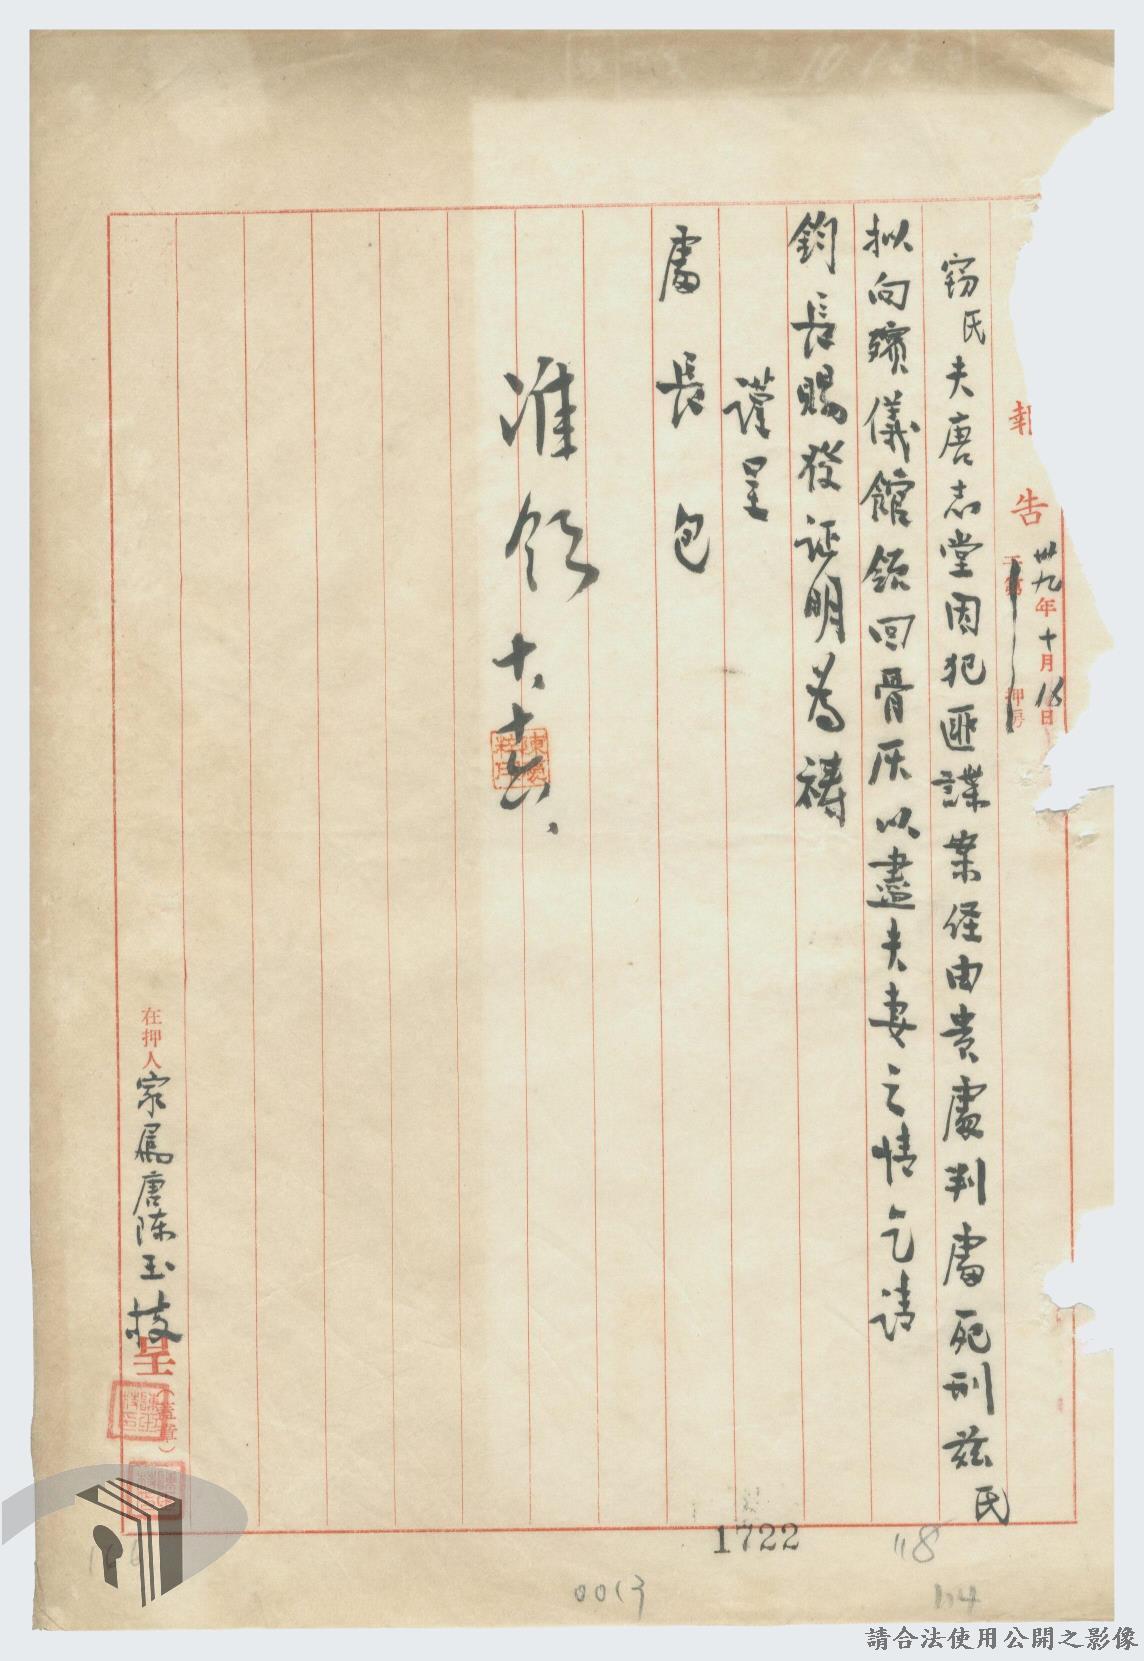 報告
卅九年十月16日
押房
竊氏夫唐志堂因犯匪諜案経由貴處判處死刑茲氏
拟向殯儀館領回骨灰以盡夫妻之情乞請
鈞長賜發証明為祷
謹呈
處長包
准領 十、十六、
在押人家属唐陈玉枝呈(蓋章)
1722
118
0013
104
請合法使用公開之影像